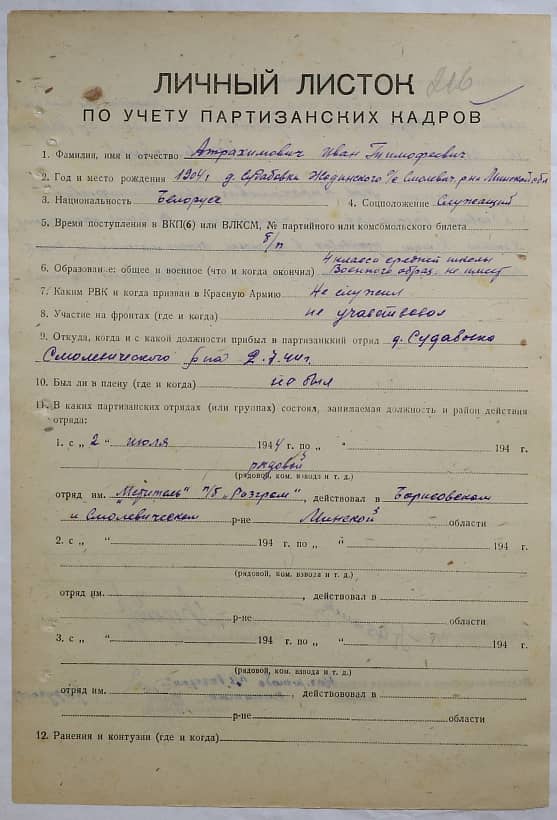 216
ЛИЧНЫЙ ЛИСТОК
ПО УЧЕТУ ПАРТИЗАНСКИХ КАДРОВ
1. Фамилия, имя и отчество Атрахимович Иван Тимофеевич
2. Год и место рождения 1904г д. Жодинского с/с Смолевич. р-на Минской обл
3. Национальность Белорус 4. Соцположение Служащий
5. Время поступления в ВКП(б) или ВЛКСМ, № партийного или комсомольского билета
б/п
4 класса средней школы
6. Образование: общее и военное (что и когда окончил) Военного образ. не имеет
7. Каким РВК и когда призван в Красную Армию Не служил
8. Участие на фронтах (где и когда) не участвовал
9. Откуда, когда и с какой должности прибыл в партизанкий отряд д.
Смолевического р-на 2.7.44г.
10. Был ли в плену (где и когда) не был
11. В каких партизанских отрядах (или группах) состоял, занимаемая должность и район действия
отряда:
1. с „ 2 “ июля 1944 г. по „ “ 194 г.
рядовой
(рядовой, ком. взвода и т. д.)
отряд им. "Мститель" п/б "Разгром", действовал в Борисовском
и Смолевическом р-не Минской области
2. с „ “ 194 г. по „ “ 194 г.
(рядовой, ком. взвода и т. д.)
отряд им. , действовал в
р-не области
3. с „ “ 194 г. по „ “ 194 г.
(рядовой, ком. взвода и т. д.)
отряд им. , действововал в
р-не области
12. Ранения и контузии (где и когда)